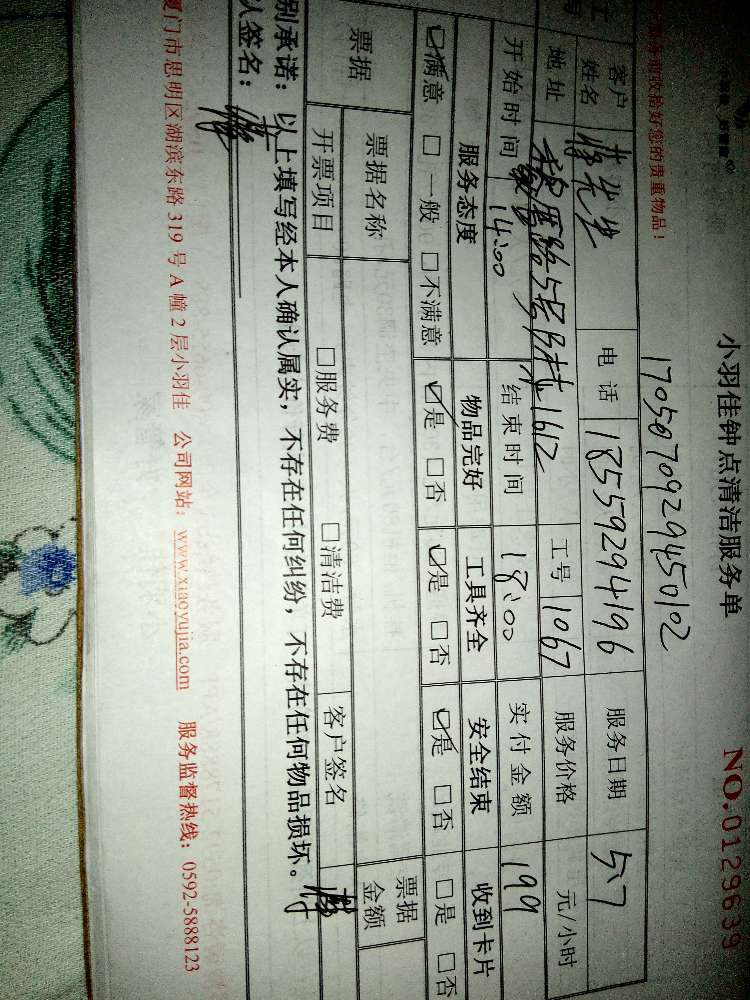 小羽佳钟点清洁服务单
NO.0129639
1705070929450102
您的贵重物品！
客户姓名 蒋先生 电话 18559294196 服务日期 5.7
地址 5号 1612 工号 1067 服务价格 元/小时
开始时间 14:00 结束时间 18:00 实付金额 199
服务态度 物品完好 工具齐全 安全结束 收到卡片
☑满意 □一般 □不满意 ☑是 □否 ☑是 □否 ☑是 □否 □是 □否
票据 票据名称 票据金额
开票项目 □服务费 □清洁费 客户签名
别承诺：以上填写经本人确认属实，不存在任何纠纷，不存在任何物品损坏。
人签名：
厦门市思明区湖滨东路 319 号 A 幢 2 层小羽佳 公司网站：www.xiaoyujia.com 服务监督热线：0592-5888123